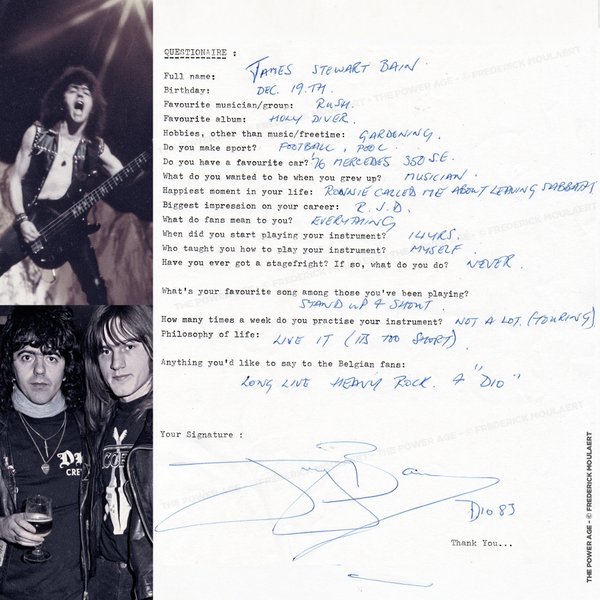 QUESTIONAIRE :
Full name: JAMES STEWART BAIN.
Birthday: DEC. 19.TH.
Favourite musician/group: RUSH.
Favourite album: HOLY DIVER.
Hobbies, other than music/freetime: GARDENING.
Do you make sport? FOOTBALL, POOL.
Do you have a favourite car? '76 MERCEDES 350 SE.
What do you wanted to be when you grew up? MUSICIAN.
Happiest moment in your life: RONNIE CALLED ME ABOUT LEAVING SABBATH
Biggest impression on your career: R.J.D.
What do fans mean to you? EVERYTHING
When did you start playing your instrument? 14YRS.
Who taught you how to play your instrument? MYSELF.
Have you ever got a stagefright? If so, what do you do? NEVER.
What's your favourite song among those you've been playing?
STAND UP & SHOUT.
How many times a week do you practise your instrument? NOT A LOT. (TOURING)
Philosophy of life: LIVE IT (ITS TOO SHORT).
Anything you'd like to say to the Belgian fans:
LONG LIVE HEAVY ROCK. & "DIO"
Your Signature :
Jimmy Bain
DIO 83
Thank You...
THE POWER AGE - © FREDERICK MOULAERT